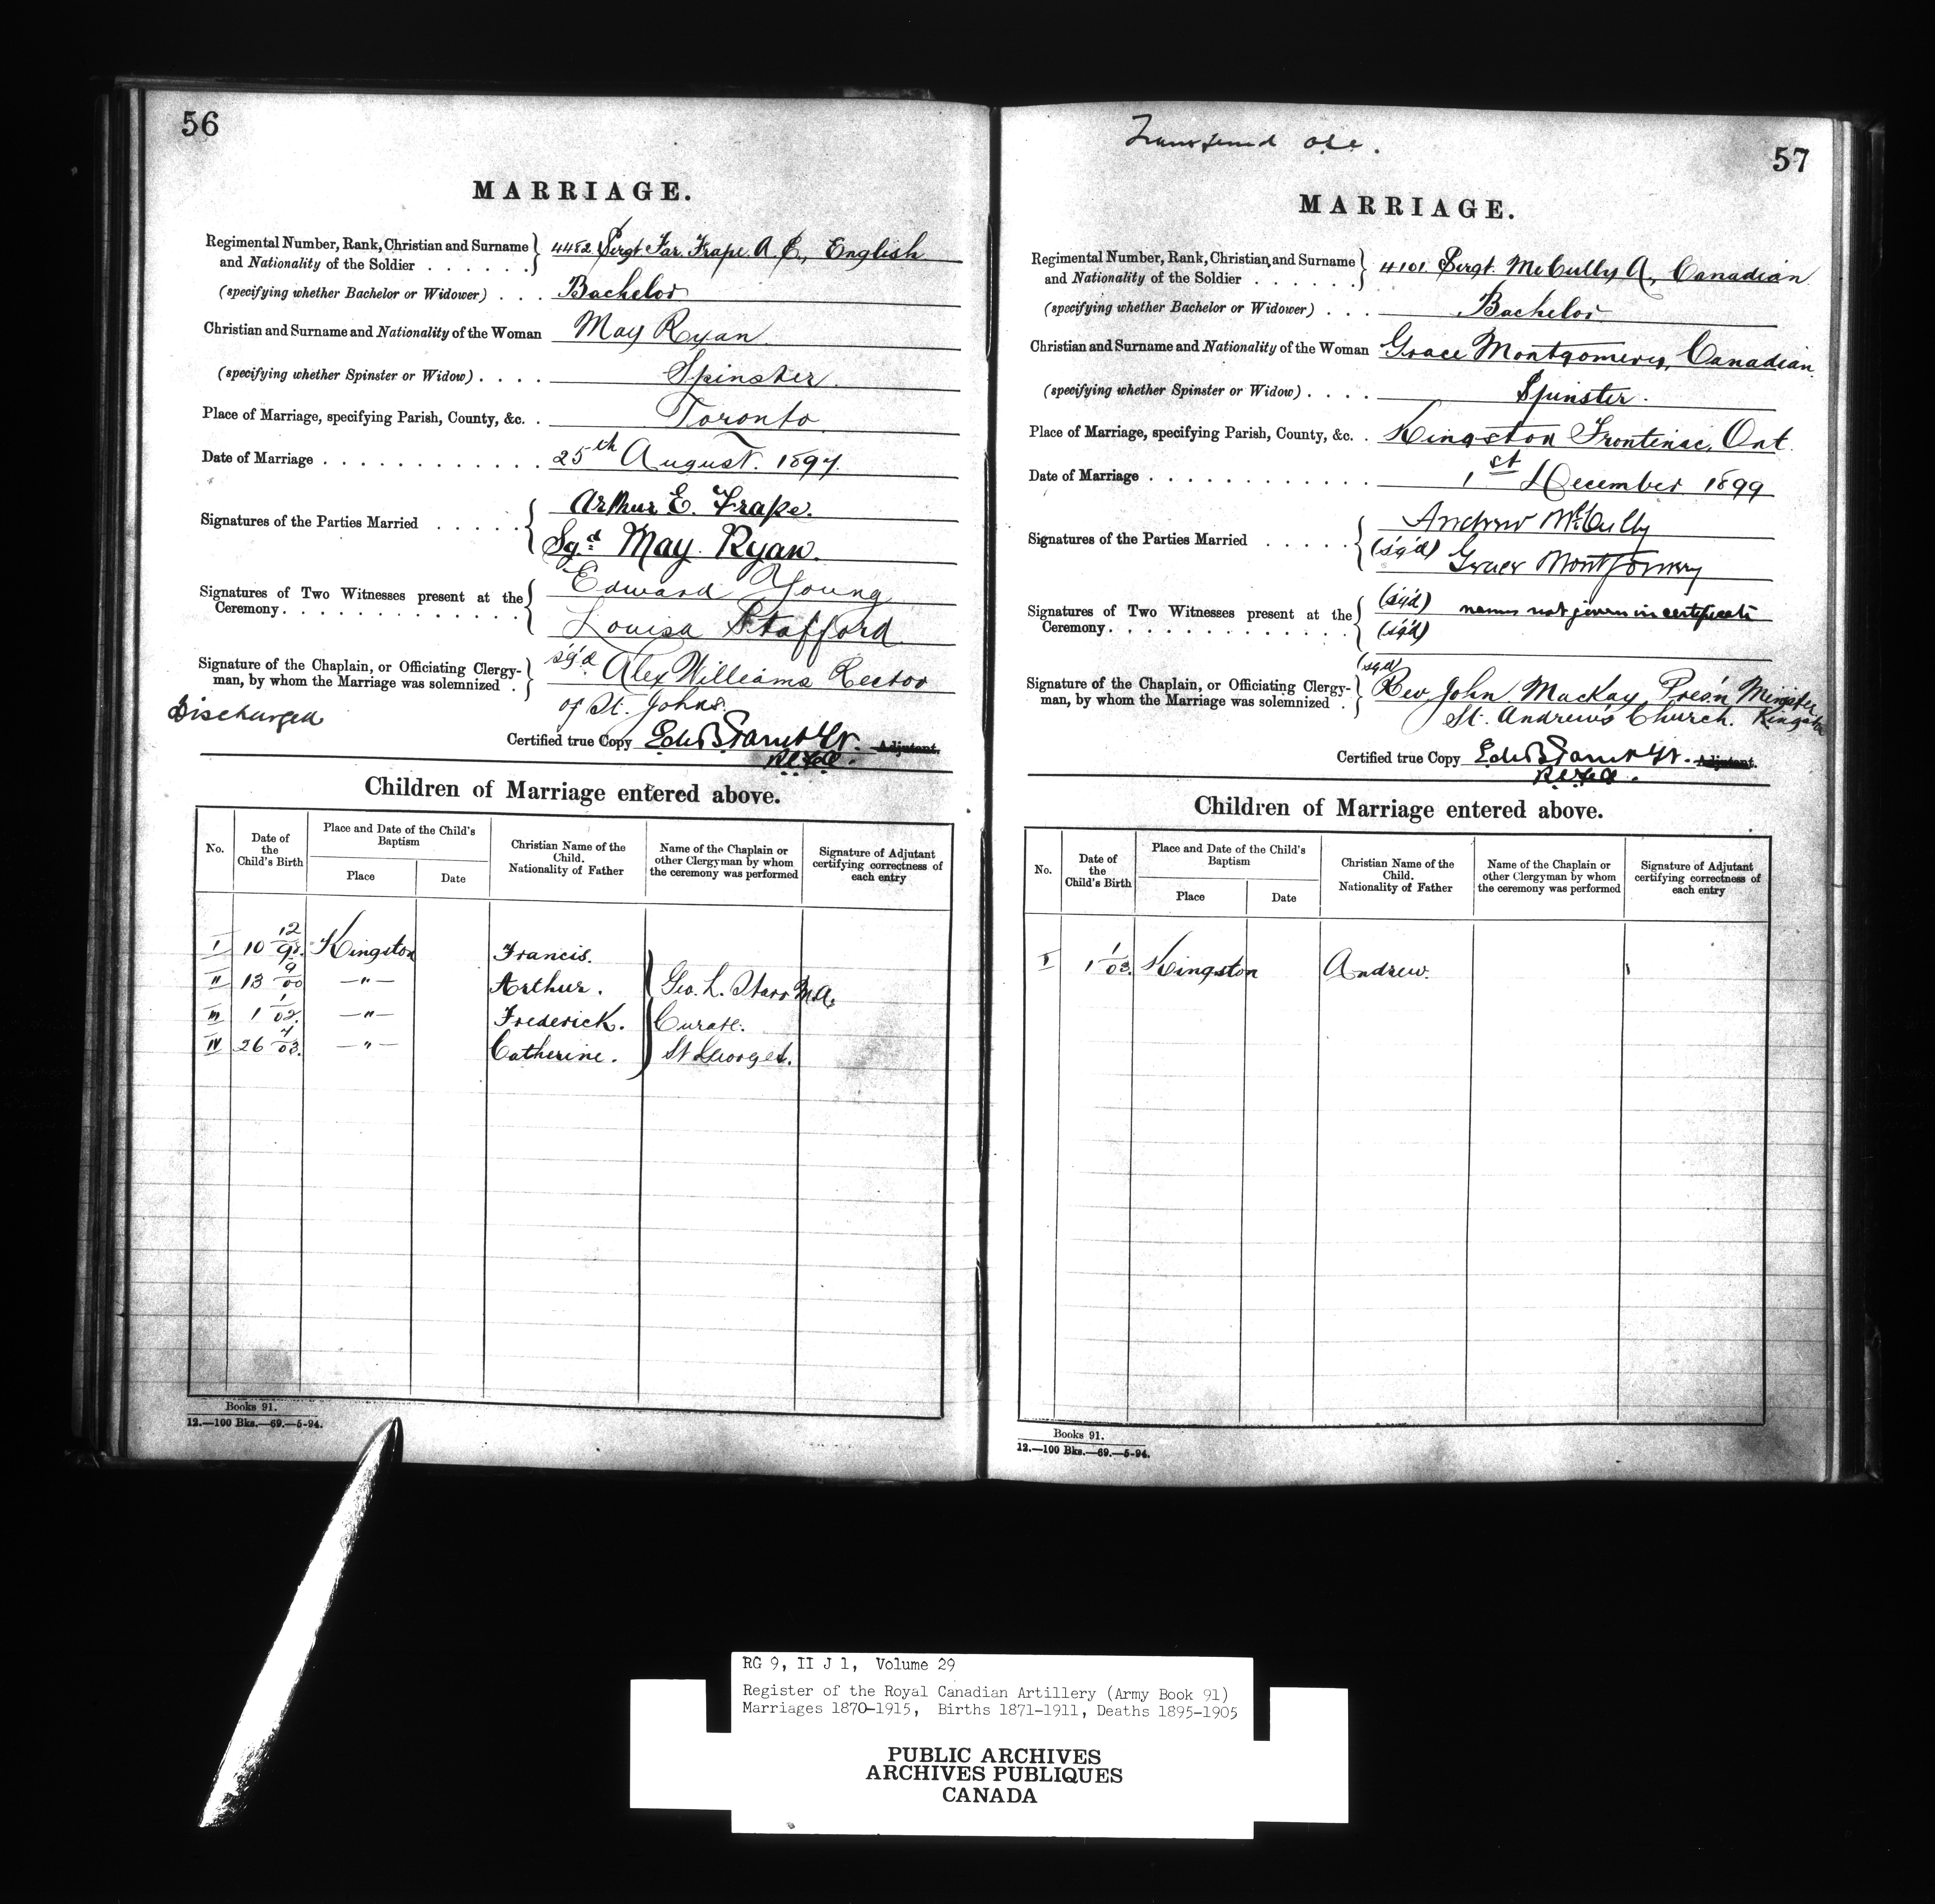 56
MARRIAGE.
Regimental Number, Rank, Christian and Surname
and Nationality of the Soldier . . . . . . 4482 Sergt. Far. Frape. A E, English
(specifying whether Bachelor or Widower) . . . Bachelor
Christian and Surname and Nationality of the Woman May Ryan
(specifying whether Spinster or Widow) . . . . Spinster.
Place of Marriage, specifying Parish, County, &c. . Toronto
Date of Marriage . . . . . . . . . . . . 25th August. 1897.
Signatures of the Parties Married . . . . . Arthur E. Frape.
Sgd May Ryan.
Signatures of Two Witnesses present at the Edward Young
Ceremony. . . . . . . . . . . . . Louisa Stafford
Signature of the Chaplain, or Officiating Clergy- sg'd Alex Williams Rector
man, by whom the Marriage was solemnized . of St. Johns.
Discharged
Certified true Copy Adjutant.
Children of Marriage entered above.
No.
Date of
the
Child's Birth
Place and Date of the Child's
Baptism
Place
Date
Christian Name of the
Child.
Nationality of Father
Name of the Chaplain or
other Clergyman by whom
the ceremony was performed
Signature of Adjutant
certifying correctness of
each entry
I 10 12/98. Kingston Francis.
II 13 9/00 —"— Arthur. Geo. L. Starr M.A.
III 1 1/02. —"— Frederick. Curate.
IV 26 —"— Catherine. St Georges.
Books 91.
12.—100 Bks.—69.—5-94.
Transferred
57
MARRIAGE.
Regimental Number, Rank, Christian and Surname
and Nationality of the Soldier . . . . . . 4101 Sergt. McCully A, Canadian
(specifying whether Bachelor or Widower) . . . Bachelor
Christian and Surname and Nationality of the Woman Grace Montgomery, Canadian
(specifying whether Spinster or Widow) . . . . Spinster.
Place of Marriage, specifying Parish, County, &c. . Kingston Frontinac, Ont.
Date of Marriage . . . . . . . . . . . . 1st December 1899
Signatures of the Parties Married . . . . . Andrew McCully
(sg'd) Grace Montgomery
Signatures of Two Witnesses present at the (sg'd) names not given in certificate
Ceremony. . . . . . . . . . . . . (sg'd)
Signature of the Chaplain, or Officiating Clergy- (sgd) Rev John Mackay, Pres'n Minister
man, by whom the Marriage was solemnized . St. Andrew's Church. Kingston
Certified true Copy Adjutant.
Children of Marriage entered above.
No.
Date of
the
Child's Birth
Place and Date of the Child's
Baptism
Place
Date
Christian Name of the
Child.
Nationality of Father
Name of the Chaplain or
other Clergyman by whom
the ceremony was performed
Signature of Adjutant
certifying correctness of
each entry
I 1 1/03. Kingston Andrew.
Books 91.
12.—100 Bks.—69.—5-94.
RG 9, II J 1, Volume 29
Register of the Royal Canadian Artillery (Army Book 91)
Marriages 1870-1915, Births 1871-1911, Deaths 1895-1905
PUBLIC ARCHIVES
ARCHIVES PUBLIQUES
CANADA